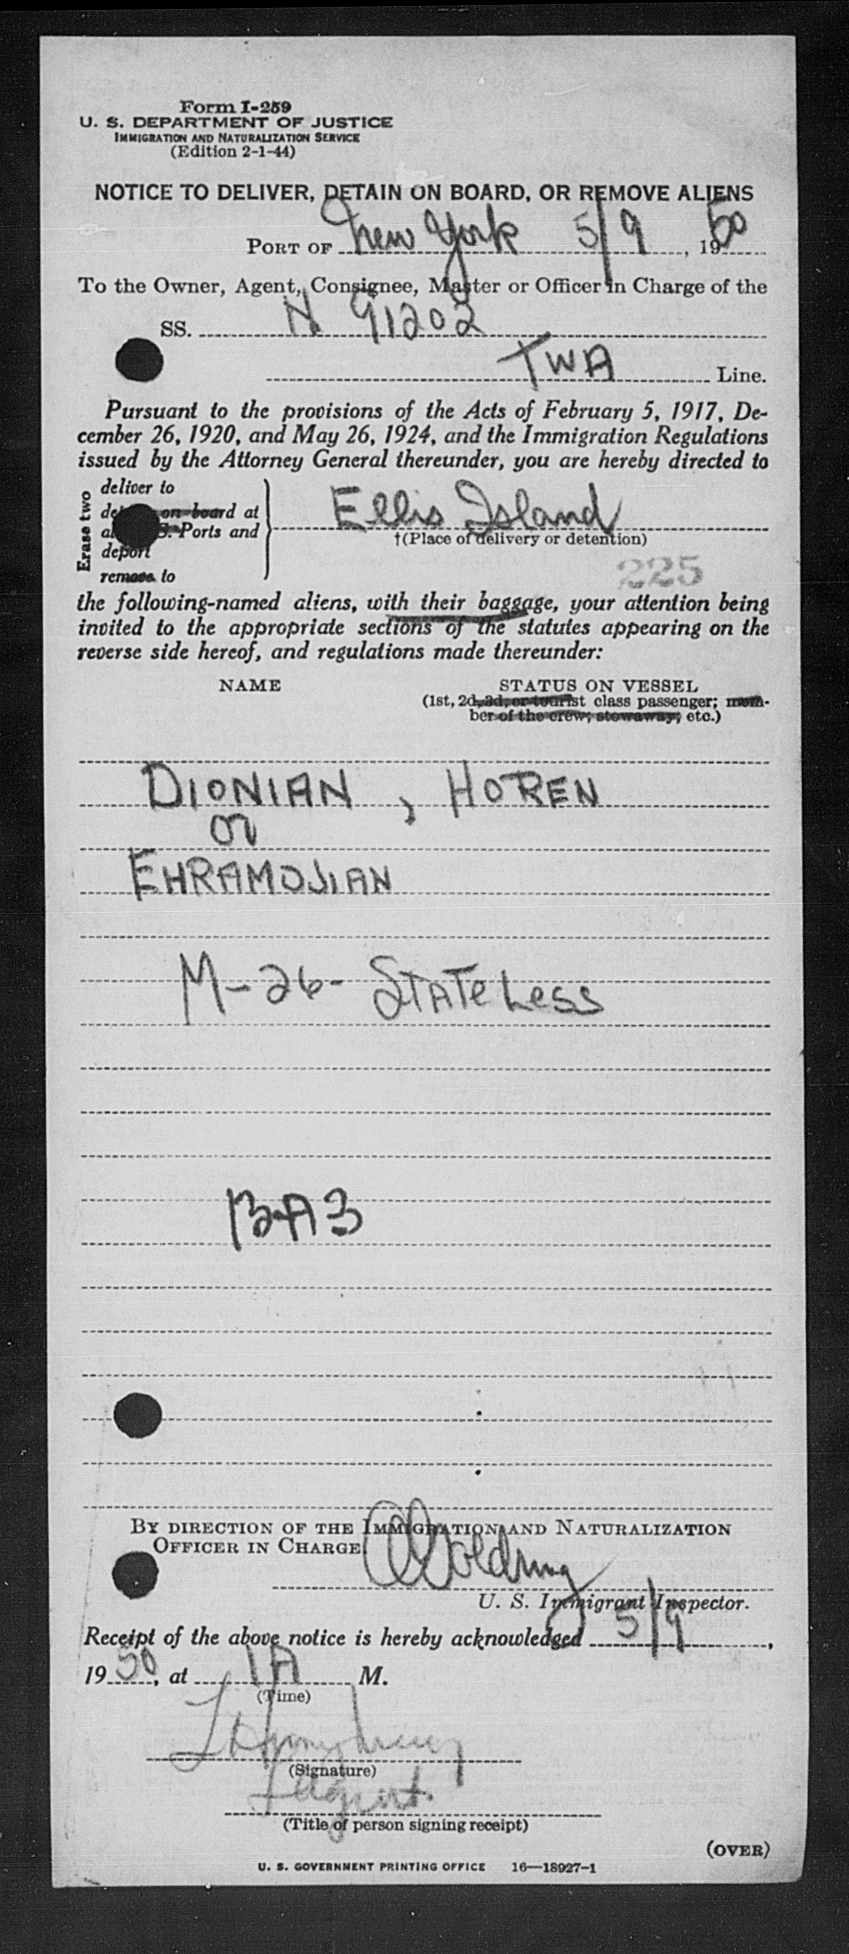 Form I-259
U. S. DEPARTMENT OF JUSTICE
IMMIGRATION AND NATURALIZATION SERVICE
(Edition 2-1-44)
NOTICE TO DELIVER, DETAIN ON BOARD, OR REMOVE ALIENS
PORT OF New York 5/9, 1950
To the Owner, Agent, Consignee, Master or Officer in Charge of the
SS. N 91202
TWA Line.
Pursuant to the provisions of the Acts of February 5, 1917, De-
cember 26, 1920, and May 26, 1924, and the Immigration Regulations
issued by the Attorney General thereunder, you are hereby directed to
Erase two
deliver to
on board at
Ports and
deport
remove to
Ellis Island
†(Place of delivery or detention)
225
the following-named aliens, with their baggage, your attention being
invited to the appropriate sections of the statutes appearing on the
reverse side hereof, and regulations made thereunder:
NAME STATUS ON VESSEL
(1st, 2d, 3d, or tourist class passenger; mem-
ber of the crew; stowaway; etc.)
DIONIAN, HOREN
or
EHRAMOJIAN
M-26- STATELESS
BA3
BY DIRECTION OF THE IMMIGRATION AND NATURALIZATION
OFFICER IN CHARGE
Goldring
U. S. Immigrant Inspector.
Receipt of the above notice is hereby acknowledged 5/9,
1950, at 1A M.
(Time)
(Signature)
Agent.
(Title of person signing receipt)
(OVER)
U. S. GOVERNMENT PRINTING OFFICE 16—18927-1